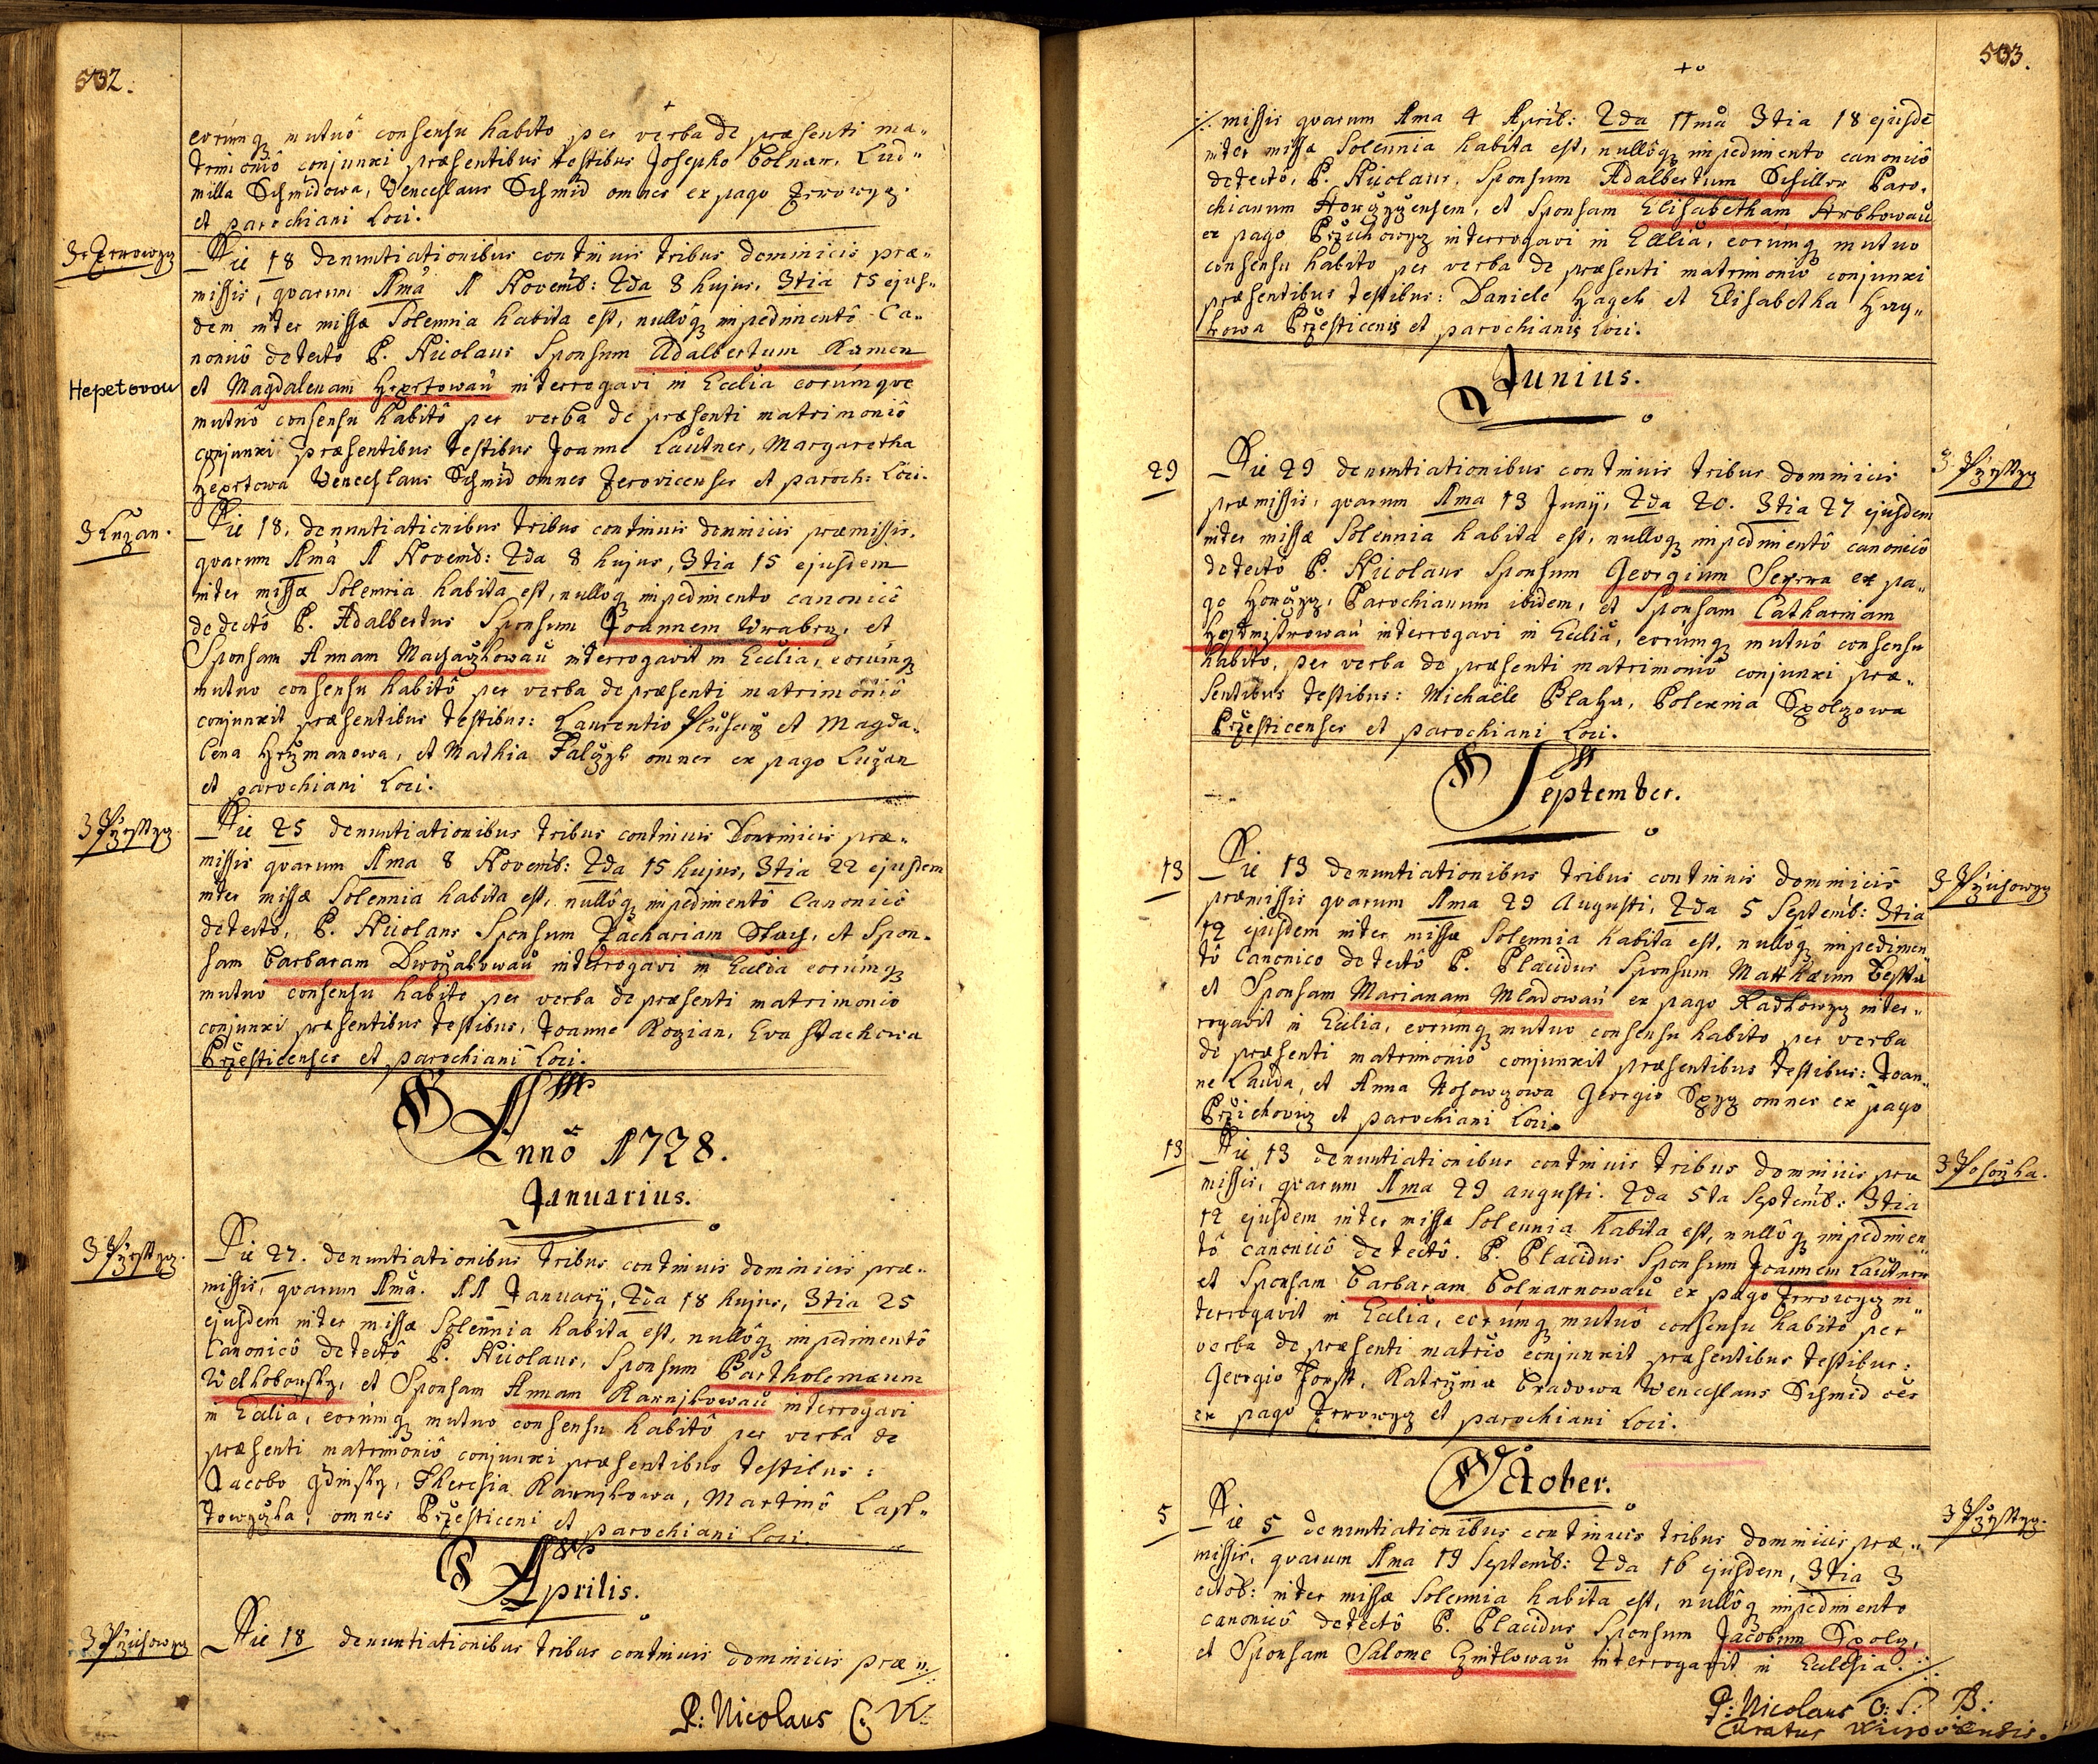 502.
eorúmq mutuô consensu habito per verba de præsenti ma„
trimoniô conjunxi præsentibus testibus Josepho Bolnar, Lud„
milla Schmidowa, Venceslaus Schmid omnes ex pago
et parochiani Loci.
Die 18 denuntiationibus continuis tribus dominicis præ„
missis, quarum 1ma 1 Novemb: 2da 8 hujus, 3tia 15 ejus„
dem inter missæ Solemnia habita est, nullôq impedimentô Ca„
nonicô detectô P. Nicolaus Sponsum Adalbertum Kamen
Hepetovou
et Magdalenam interrogavi in Ecclia eorúmque
mutuô consensu habitô per verba de præsenti matrimoniô
conjunxi præsentibus testibus Joanne Lautner, Margaretha
Venceslaus Schmid omnes Zerovicenses et paroch: Loci.
3 Luzan.
Die 18. denuntiationibus tribus continuis dominicis præmissis.
quarum 1ma 1 Novemb: 2da 8 hujus, 3tia 15 ejusdem
inter missæ Solemnia habita est, nullôq impedimento canonicô
detectô P. Adalbertus Sponsum Joannem Wrabez, et
Sponsam Annam interrogavit in Ecclia, eorúmq
mutuo consensu habitô per verba de præsenti matrimoniô
conjunxit præsentibus testibus: Laurentio et Magda„
lena Hezmanowa, et Mathia omnes ex pago Luzan
et parochiani Loci.
Die 25 denuntiationibus tribus continuis Dominicis præ„
missis quarum 1ma 8 Novemb: 2da 15 hujus, 3tia 22 ejusdem
inter missæ Solemnia habita est, nullôq impedimentô Canonicô
detectô, P. Nicolaus Sponsum Zachariam Stach, et Spon„
sam Barbaram Dworzakowau interrogavi in Ecclia eorúmq
mutuô consensu habito per verba de præsenti matrimonio
conjunxi præsentibus testibus, Joanne Kozian, Eva Stachowa
Przesticenses et parochiani Loci.
Annô 1728.
Januarius.
Die 27. denuntiationibus tribus continuis dominicis præ„
missis, quarum 1ma. 11 Januarij, 2da 18 hujus, 3tia 25
ejusdem inter missæ Solemnia habita est, nullôq impedimentô
Canonicô detectô P. Nicolaus, Sponsum Bartholomæum
et Sponsam Annam interrogavi
in Ecclia, eorúmq mutuo consensu habitô per verba de
præsenti matrimoniô conjunxi præsentibus testibus:
Jacobo Theresia Martinô
omnes Przesticeni et parochiani Loci.
Aprilis.
Die 18 denuntiationibus tribus continuis dominicis præ„
P: Nicolaus
503.
missis quarum 1ma 4 April: 2da 11mâ 3tia 18 ejusdẽ
inter missæ Solemnia habita est, nullôq impedimento canonicô
detectô, P. Nicolaus, Sponsum Adalbertum Schiller Paro„
chianum et Sponsam Elisabetham Hrbkowau
ex pago interrogavi in Ecclia, eorúmq mutuo
consensu habito per verba de præsenti matrimoniô conjunxi
præsentibus testibus: Daniele Hagek et Elisabetha Hag„
kowa Przesticenis et parochianis Loci.
Junius.
29
Die 29 denuntiationibus continuis tribus dominicis
præmissis, quarum 1ma 13 Junij, 2da 20. 3tia 27 ejusdem
inter missæ Solemnia habita est, nulloq impedimentô canonicô
detectô P. Nicolaus Sponsum Georgium ex pa„
go Parochianum ibidem, et Sponsam Catharinam
interrogavi in Ecclia, eorúmq mutuô consensu
habito, per verba de præsenti matrimoniô conjunxi præ„
sentibus testibus: Michaële Blaha, Polexina
Przesticenses et parochiani Loci.
September.
13
Die 13 denuntiationibus tribus continuis dominicis
præmissis quarum 1ma 29 Augusti, 2da 5 Septemb: 3tia
12 ejusdem inter missæ Solemnia habita est, nullôq impedimen„
tô Canonico detectô P. Placidus Sponsum Matthæum
et Sponsam Marianam Mladowau ex pago Radkowyz inter„
rogavit in Ecclia, eorúmq mutuo consensu habito per verba
de præsenti matrimoniô conjunxit præsentibus testibus: Joan„
ne Lauda, et Anna Georgio omnes ex pago
et parochiani Loci.
13
Die 13 denuntiationibus continuis tribus dominicis præ
missis, quarum 1ma 29 augusti. 2da 5ta Septemb: 3tia
12 ejusdem inter missæ Solemnia habita est, nullôq impedimen„
tô canonicô detectô. P. Placidus Sponsum Joannem Lautner
et Sponsam Barbaram Bolnarnowau ex pago in„
terrogavit in Ecclia, eorúmq mutuô consensu habito per
verba de præsenti conjunxit præsentibus testibus:
Georgio Forst, Katrzina Wenceslaus Schmid
ex pago et parochiani Loci.
October.
5
Die 5 denuntiationibus continuis tribus dominicis præ„
missis, quarum 1ma 19 Septemb: 2da 16 ejusdem, 3tia 3
octob: inter missæ Solemnia habita est, nullôq impedimento
canonicô detectô P. Placidus Sponsum Jacobum
et Sponsam Salome interrogavit in Ecclesia
P: Nicolaus O: S: B:
Curatus